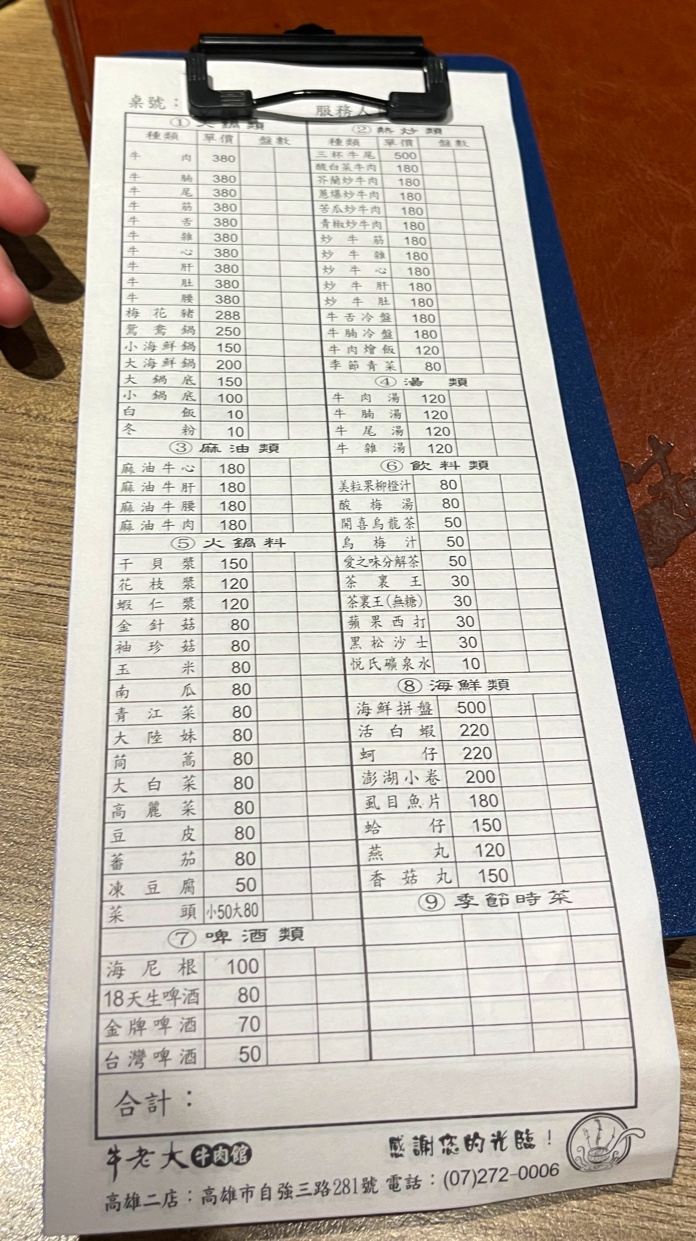 桌號：
服務人
① 火鍋類
種類 單價 盤數
牛肉 380
牛腩 380
牛尾 380
牛筋 380
牛舌 380
牛雜 380
牛心 380
牛肝 380
牛肚 380
牛腰 380
梅花豬 288
鴛鴦鍋 250
小海鮮鍋 150
大海鮮鍋 200
大鍋底 150
小鍋底 100
白飯 10
冬粉 10
③ 麻油類
麻油牛心 180
麻油牛肝 180
麻油牛腰 180
麻油牛肉 180
⑤ 火鍋料
干貝漿 150
花枝漿 120
蝦仁漿 120
金針菇 80
袖珍菇 80
玉米 80
南瓜 80
青江菜 80
大陸妹 80
茼蒿 80
大白菜 80
高麗菜 80
豆皮 80
蕃茄 80
凍豆腐 50
菜頭 小50大80
⑦ 啤酒類
海尼根 100
18天生啤酒 80
金牌啤酒 70
台灣啤酒 50
② 熱炒類
種類 單價 盤數
三杯牛尾 500
酸白菜牛肉 180
芥蘭炒牛肉 180
蔥爆炒牛肉 180
苦瓜炒牛肉 180
青椒炒牛肉 180
炒牛筋 180
炒牛雜 180
炒牛心 180
炒牛肝 180
炒牛肚 180
牛舌冷盤 180
牛腩冷盤 180
牛肉燴飯 120
季節青菜 80
④ 湯類
牛肉湯 120
牛腩湯 120
牛尾湯 120
牛雜湯 120
⑥ 飲料類
美粒果柳橙汁 80
酸梅湯 80
開喜烏龍茶 50
烏梅汁 50
愛之味分解茶 50
茶裏王 30
茶裏王(無糖) 30
蘋果西打 30
黑松沙士 30
悅氏礦泉水 10
⑧ 海鮮類
海鮮拼盤 500
活白蝦 220
蚵仔 220
澎湖小卷 200
虱目魚片 180
蛤仔 150
燕丸 120
香菇丸 150
⑨ 季節時菜
合計：
牛老大牛肉館
感謝您的光臨！
高雄二店：高雄市自強三路281號 電話：(07)272-0006